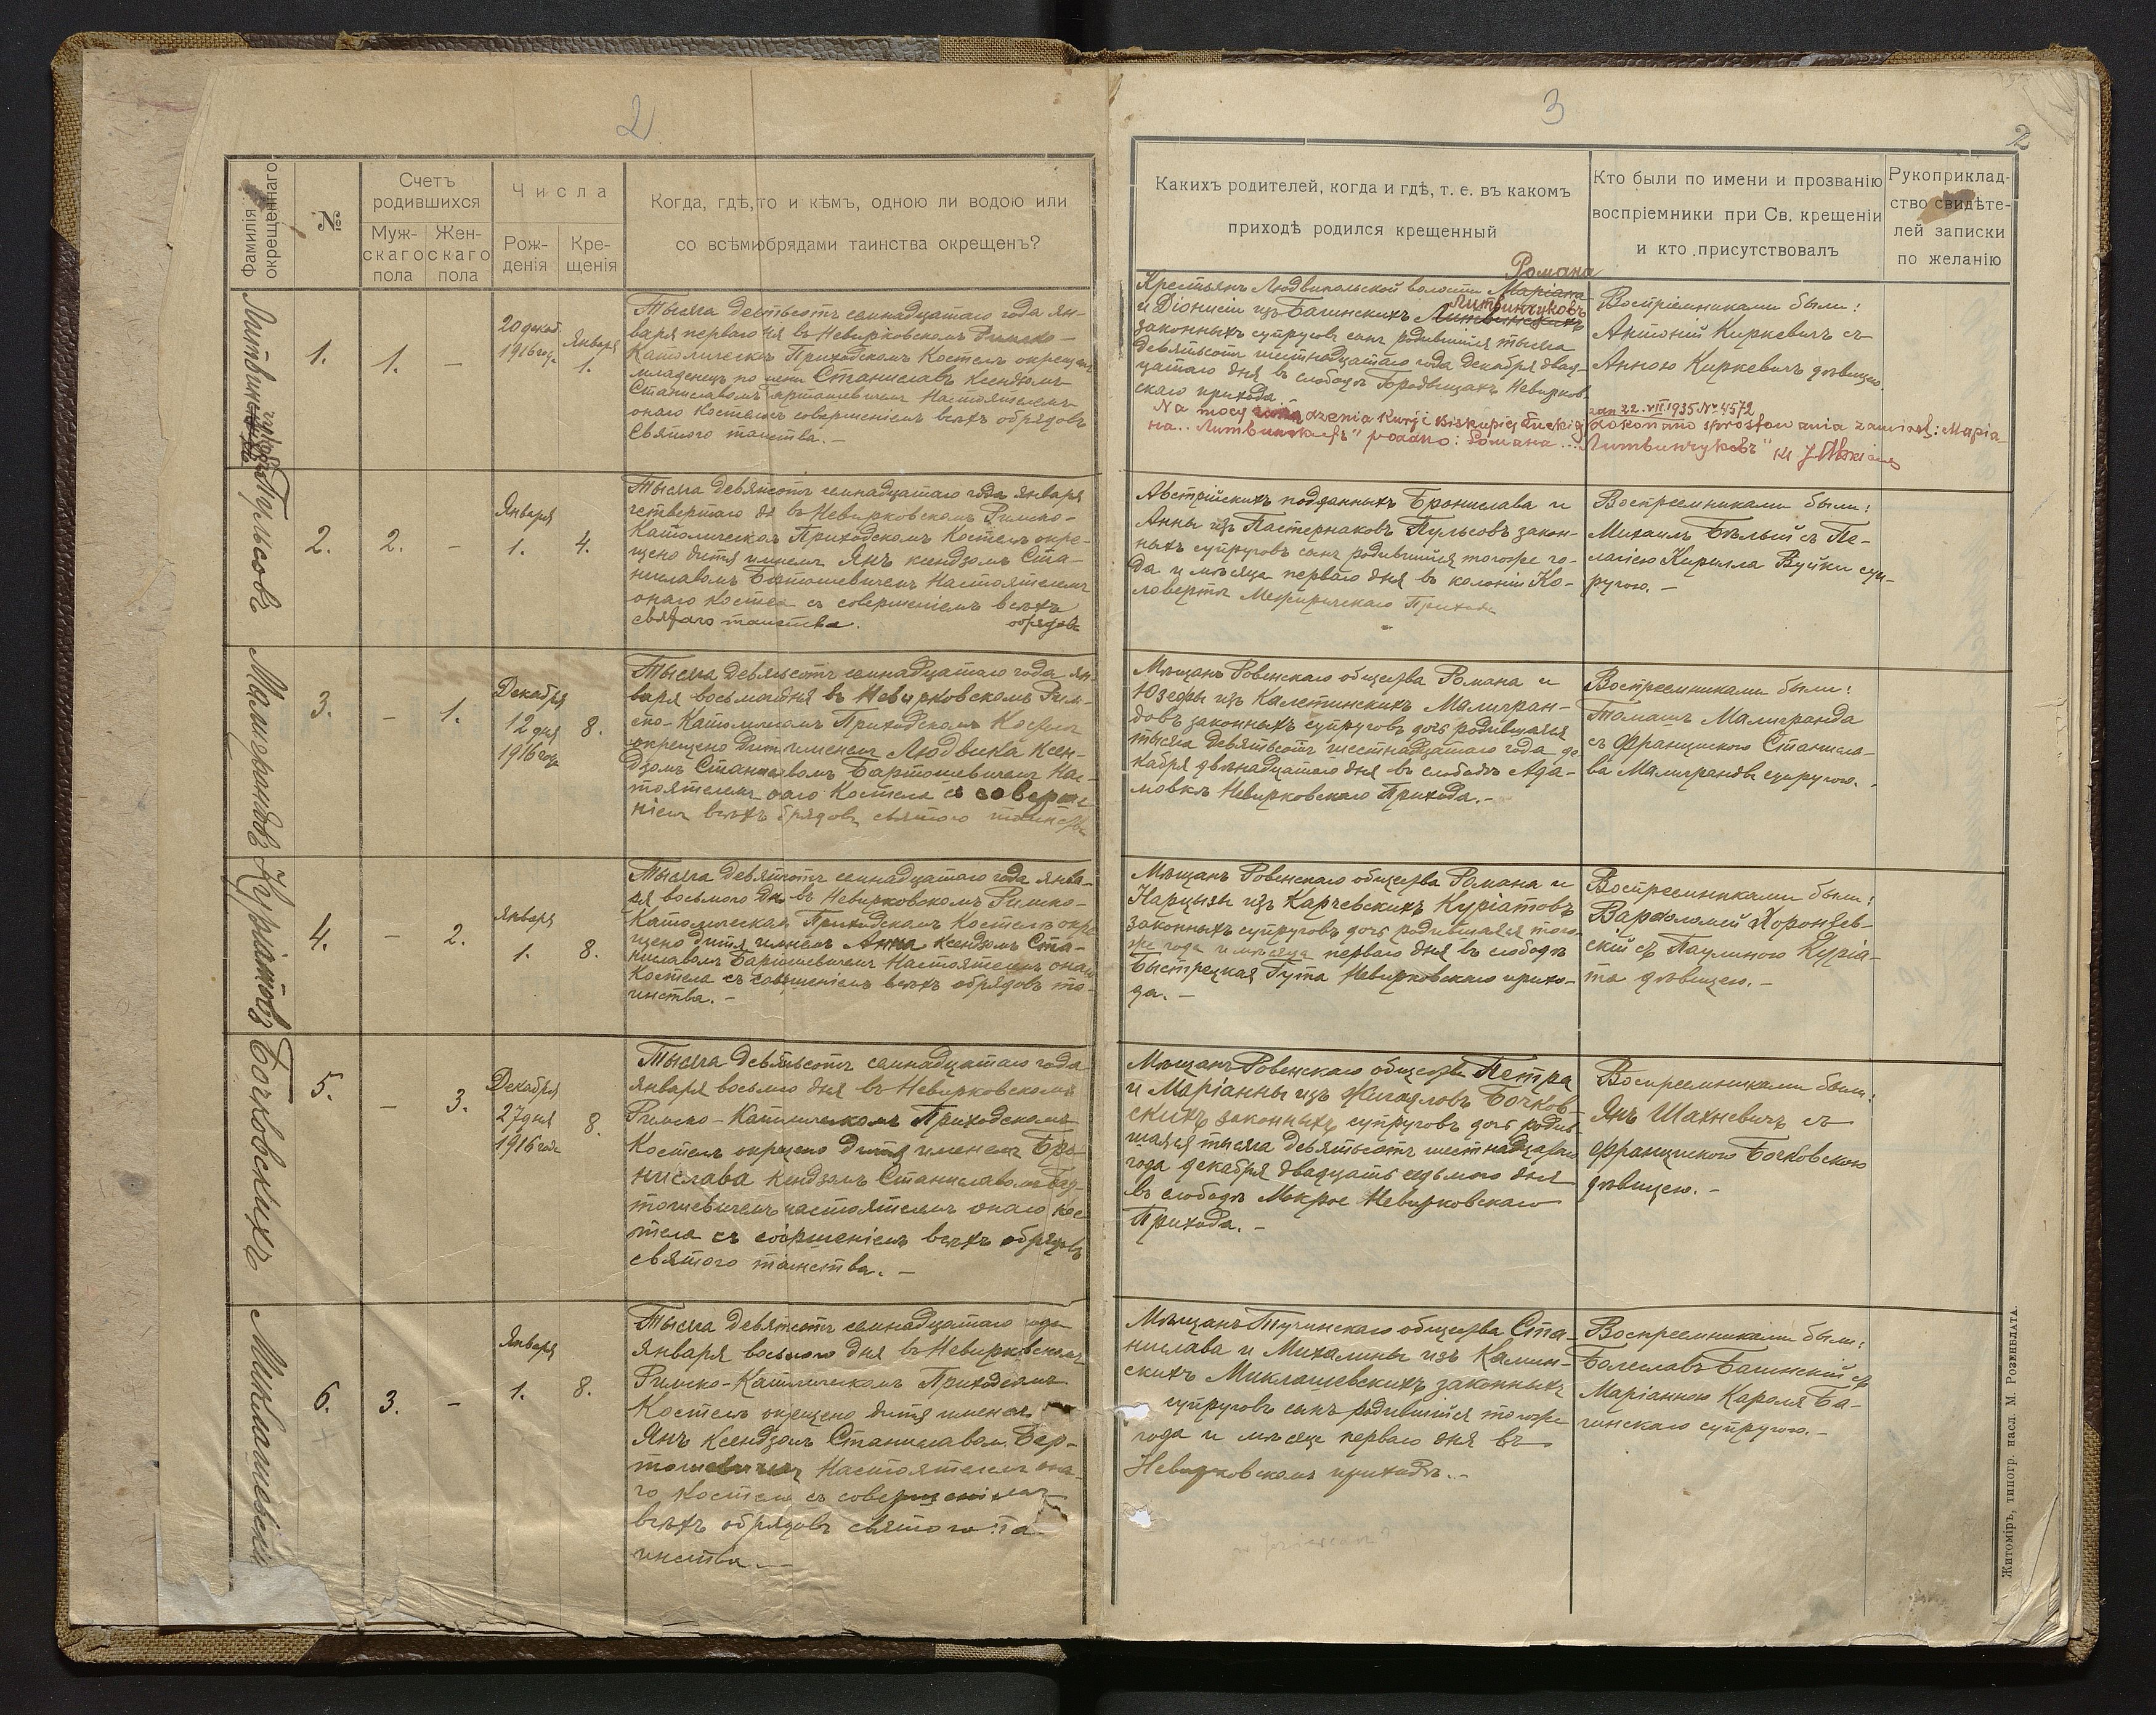 2
Фамилія окрещеннаго
№
Счетъ родившихся
Муж-скаго пола
Жен-скаго пола
Числа
Рож-денія
Кре-щенія
Когда, гдѣ, то и кѣмъ, одною ли водою или
со всѣми обрядами таинства окрещенъ?
1.
1.
—
20 декаб.
1916 год.
Января
1.
Тысяча девятьсотъ семнадцатаго года ян-
варя перваго дня въ Невирковскомъ Римско-
Католическомъ Приходскомъ Костелѣ окрещенъ
младенецъ по имени Станиславъ Ксендзомъ
Станиславомъ Бартошевичемъ Настоятелемъ
онаго Костела съ совершеніемъ всѣхъ обрядовъ
Святого таинства. —
Пульсовъ
2.
2.
—
Января
1.
4.
Тысяча девятсотъ семнадцатаго года января
четвертаго дн въ Невирковскомъ Римско-
Католическомъ Приходскомъ Костелѣ окре-
щено дитя именемъ Янъ ксендзомъ Ста-
ниславомъ Бартошевичемъ Настоятелемъ
онаго Костела съ совершеніемъ всѣхъ
святаго таинства. обрядовъ
Малиграндовъ
3.
—
1.
Декабря
12 дня
1916 года
8.
Тысяча девятьсотъ семнадцатаго года ян-
варя восьмаго дня въ Невирковскомъ Рим-
ско-Католическомъ Приходскомъ Костелѣ
окрещено дитя именемъ Людвика Ксен-
дзомъ Станиславомъ Бартошевичемъ Нас-
тоятелемъ онаго Костела съ соверше-
ніемъ всѣхъ обрядовъ святого таинства
Куріатовъ
4.
—
2.
Января
1.
8.
Тысяча девятсотъ семнадцатаго года янва-
ря восьмого дня въ Невирковскомъ Римско-
Католическомъ Приходскомъ Костелѣ окре
щено дитя именемъ Анна ксендзомъ Ста-
ниславомъ Бартошевичемъ Настоятелемъ онаго
Костела съ совершеніемъ всѣхъ обрядовъ та-
инства. —
Бочковскихъ
5.
—
3.
Декабря
27 дня
1916 года
8.
Тысяча девятьсотъ семнадцатаго года
января восьмого дня въ Невирковскомъ
Римско-Католическомъ Приходскомъ
Костелѣ окрещено дитя именемъ Бро
нислава Ксендзомъ Станиславомъ Бар-
тошевичемъ настоятелемъ онаго кос
тела съ совершеніемъ всѣхъ обрядовъ
святого таинства. —
Миклашевскій
6.
3.
—
Января
1.
8.
Тысяча девятсотъ семнадцатаго года
января восьмого дня въ Невирковскомъ
Римско-Католическомъ Приходскомъ
Костелѣ окрещено дитя именемъ
Янъ Ксендзомъ Станиславомъ Бар-
тошевичемъ Настоятелемъ она-
го костела съ совершеніемъ
всѣхъ обрядовъ святого та
инства. —
3
2
Какихъ родителей, когда и гдѣ, т. е. въ какомъ
приходѣ родился крещенный
Кто были по имени и прозванію
воспріемники при Св. крещеніи
и кто присутствовалъ
Рукоприклад-
ство свидѣте-
лей записки
по желанію
Романа
Крестьянъ Людвипольской волости Маріана
Литвинчуковъ
и Діонисіи изъ Багинскихъ Литвинскихъ
законныхъ супруговъ сынъ родившійся тысяча
девятьсотъ шестнадцатаго года декабря двад-
цатаго дня въ слободѣ Невирков
скаго прихода.
Воспріемниками были:
Антоній Киркевичъ съ
Анною Киркевичъ дѣвицею.
Na mocy zarządzenia Kurji Biskupiej Łuckiej zan 22. VII. 1935 № 4572
dokonano sprostowania zamiast: Маріа-
на.. Литвинскихъ" podano: Романа... Литвинчуковъ" Ks J
Австрійскихъ подданныхъ Бронислава и
Анны изъ Пастернаковъ Пульсовъ закон-
ныхъ супруговъ сынъ родившійся тогоже го-
да и мѣсяца перваго дня въ колоніи Ко-
ловерты Межиричскаго Прихода
Воспреемниками были:
Михаилъ Бѣлый съ Пе-
лагіею Кирилла Вуйки суп-
ругою. —
Мѣщанъ Ровенскаго общества Романа и
Юзефы изъ Калетинскихъ Малигран-
довъ законныхъ супруговъ дочь родившаяся
тысяча девятьсотъ шестнадцатаго года де
кабря двѣнадцатаго дня въ слободѣ Ада-
мовкѣ Невирковскаго Прихода. —
Воспреемниками были:
Томашъ Малигранда
съ Францишкою Станисла-
ва Малигранды супругою.
Мѣщанъ Ровенскаго общества Романа и
Нарцызы изъ Карчевскихъ Куріатовъ
законныхъ супруговъ дочь родившаяся того-
же года и мѣсяца перваго дня въ слободѣ
Быстрецкая Гута Невирковскаго прихо-
да. —
Воспреемниками были:
Варфоломей Хоронзев-
скій съ Паулиною Куріа-
та дѣвицею. —
Мѣщанъ Ровенскаго общества Петра
и Маріанны изъ Фигасловъ Бочков-
скихъ законныхъ супруговъ дочь родив
шаяся тысяча девятьсотъ шестнадцатаго
года декабря двадцать седьмого дня
въ слободѣ Мокрое Невирковскаго
Прихода. —
Воспреемниками были:
Янъ Шахневичъ съ
Францишкою Бочковскою
дѣвицею. —
Мѣщанъ Тучинскаго общества Ста-
нислава и Михалины изъ Камин-
скихъ Миклашевскихъ законныхъ
супруговъ сынъ родившійся тогоже
года и мѣсяца перваго дня въ
Невирковскомъ приходѣ. —
Воспреемниками были:
Болеславъ Багинскій съ
Маріанною Кароля Ба-
гинскаго супругою. —
Житоміръ, типогр. насл. М. Розенблата